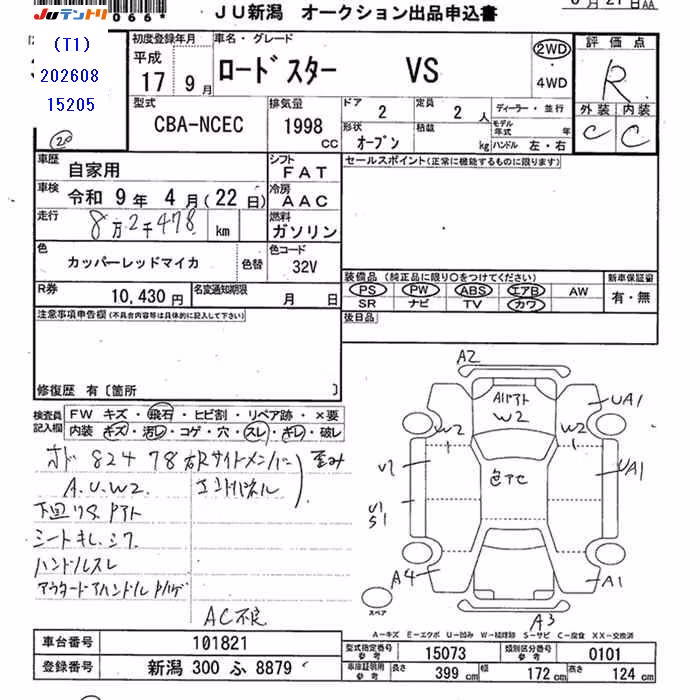 JUテントリ
066*
JU新潟 オークション出品申込書
(T1)
202608
15205
20
初度登録年月
平成
17 9月
車名・グレード
ロードスター VS
2WD
4WD
評価点
R
外装 内装
C C
型式
CBA-NCEC
排気量
1998 cc
ドア
2
定員
2 人
ディーラー・並行
形状
オープン
積載
kg
モデル年式 年
ハンドル 左・右
車歴
自家用
シフト
FAT
セールスポイント(正常に機能するものに限ります)
車検
令和 9年 4月(22日)
冷房
AAC
走行
8万2千478 km
燃料
ガソリン
色
カッパーレッドマイカ
色替
色コード
32V
装備品(純正品に限り○をつけてください)
PS PW ABS エアB AW
SR ナビ TV カワ
新車保証書
有・無
R券
10,430円
名変通知期限
月 日
後日品
注意事項申告欄(不具合内容等は具体的に記入して下さい)
修復歴 有〔箇所 〕
検査員記入欄
FW キズ・飛石・ヒビ割・リペア跡・×要
内装 キズ・汚レ・コゲ・穴・スレ・キレ・破レ
オド 82478 右Rサイドメンバー 歪み
A.U.W2. エンドパネル
下回リサビアト
シートキレ.シワ
ハンドルスレ
AC不良
A2
UA1
W2
W2
W2
UA1
色アセ
A4
A1
A3
スペア
A−キズ E−エクボ U−凹み W−補修跡 S−サビ C−腐食 XX−交換済
車台番号 101821
登録番号 新潟 300 ふ 8879
型式指定番号 参考 15073
類別区分番号 参考 0101
車庫証明用 参考 長さ 399 cm 幅 172 cm 高さ 124 cm